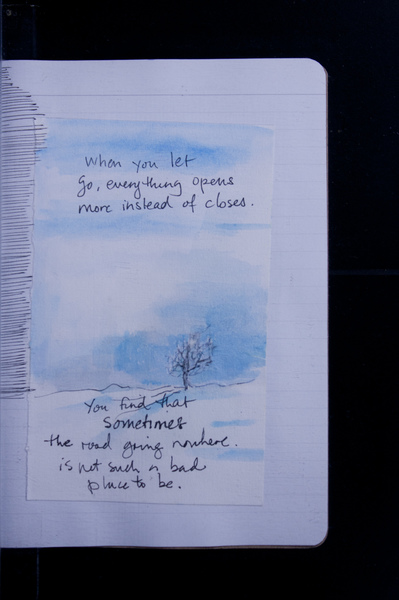 When you let
Go, everything opens
more instead of closes.
You find that
sometimes
the road going nowhere.
is not such a bad
place to be.